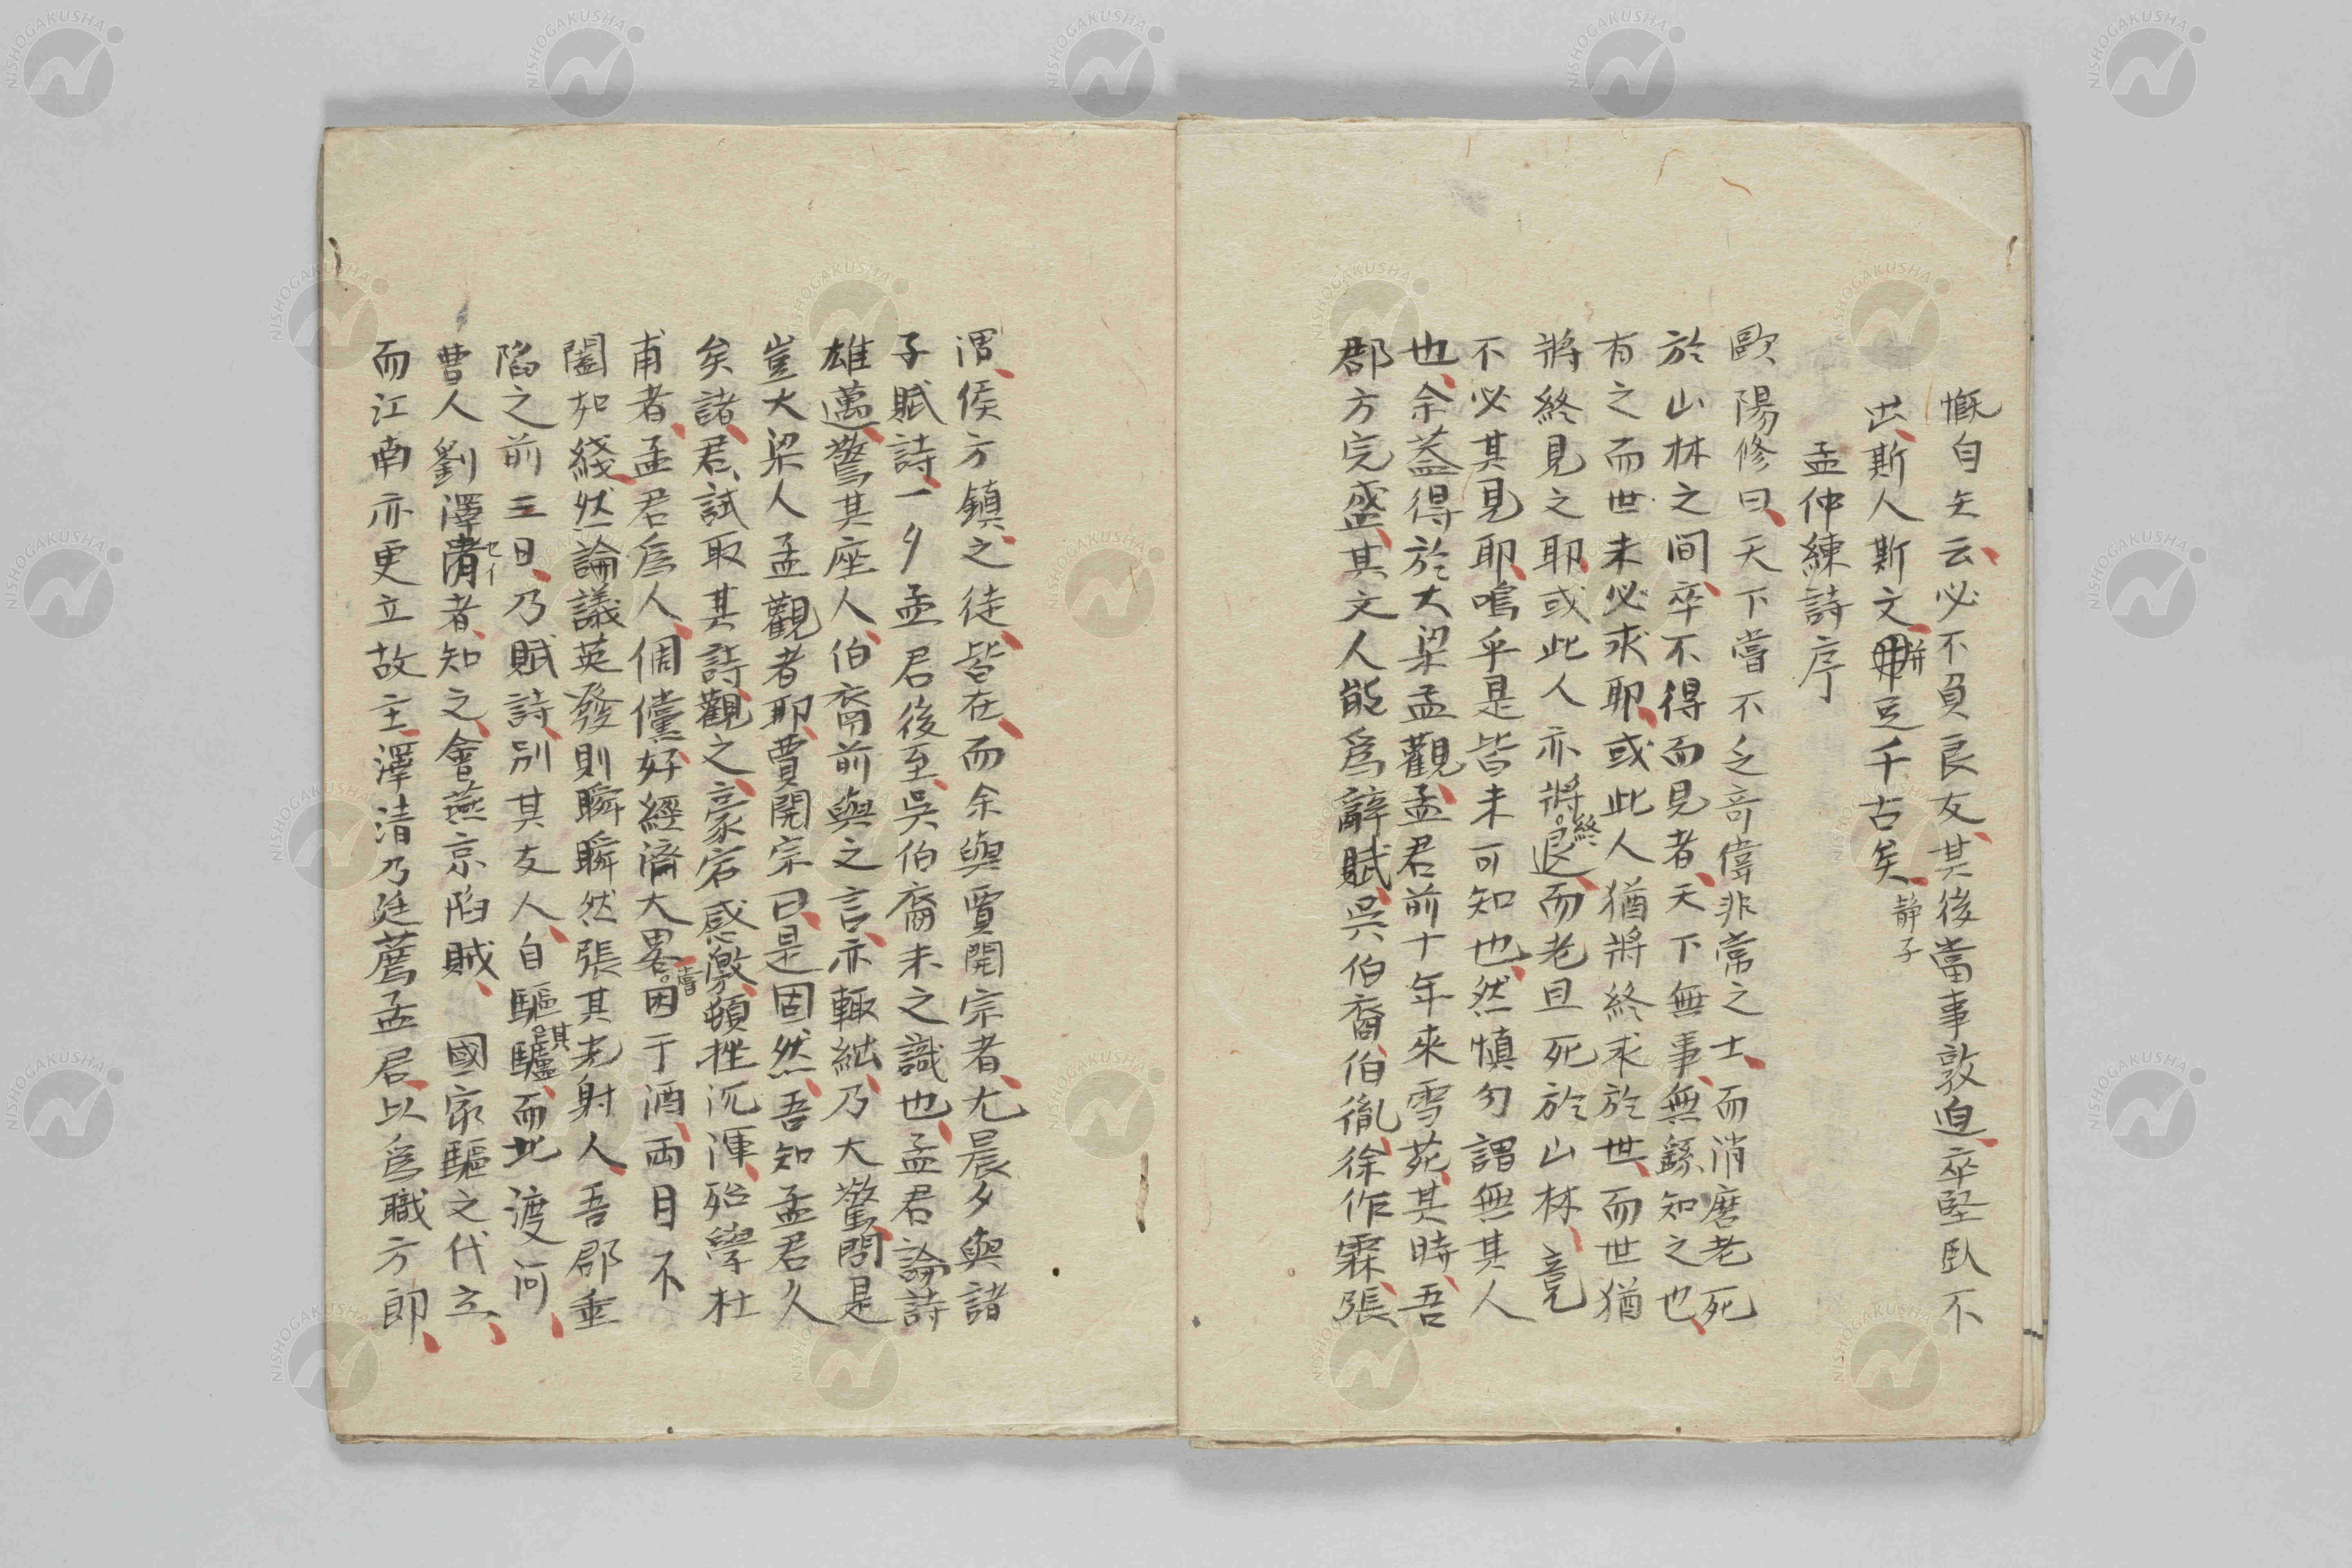 慨自矢云必不負良友其後當事敦迫卒堅臥不
出斯人斯文毌并足千古矣
静子
孟仲練詩序
歐陽修曰天下嘗不乏奇偉非常之士而消磨老死
於山林之間卒不得而見者天下無事無繇知之也
有之而世未必求耶或此人猶將終求於世而世猶
將終見之耶或此人亦將退終而老且死於山林竟
不必其見耶嗚乎是皆未可知也然慎勿謂無其人
也余蓋得於大梁孟觀孟君前十年來雪苑其時吾
郡方完盛其文人能爲辭賦吳伯裔伯胤徐作霖張
渭侯方鎮之徒皆在而余與賈開宗者尤晨夕與諸
子賦詩一夕孟君後至吳伯裔未之識也孟君論詩
雄邁驚其座人伯裔前與之言亦輙絀乃大驚問是
豈大梁人孟觀者耶賈開宗曰是固然吾知孟君久
矣諸君試取其詩觀之豪宕感激頓挫沉渾殆學杜
甫者孟君爲人倜儻好經濟大畧因嘗于酒両目不
闔如綫然論議英發則瞬瞬然張其光射人吾郡垂
陷之前三日乃賦詩別其友人自驅驢其而北渡河
曹人劉澤清セイ者知之會燕京陷賊 國家驅之代立
而江南亦更立故主澤清乃廷薦孟君以爲職方郎
NISHOGAKUSHA